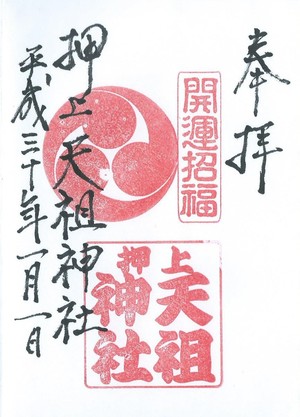 奉拝
開運招福
押上天祖神社
上天祖
押神社
平成三十年一月一日